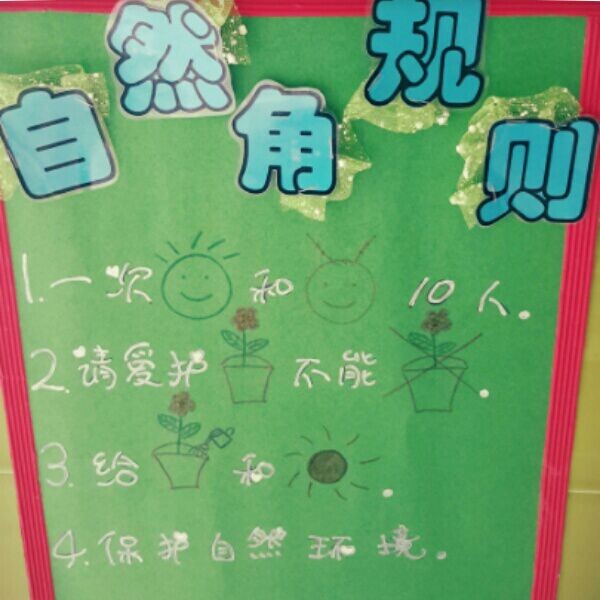 自然角规则
1.一次和10人。
2.请爱护不能。
3.给和。
4.保护自然环境。